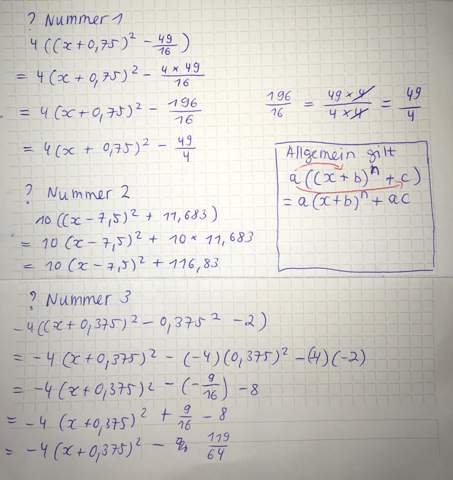 ? Nummer 1
4((x+0,75)² - 49/16)
= 4(x+0,75)² - 4×49/16
= 4(x+0,75)² - 196/16
196/16 = 49×4/4×4 = 49/4
= 4(x + 0,75)² - 49/4
Allgemein gilt
a((x+b)ⁿ + c)
= a(x+b)ⁿ + ac
? Nummer 2
10((x-7,5)² + 11,683)
= 10(x-7,5)² + 10×11,683
= 10(x-7,5)² + 116,83
? Nummer 3
-4((x+0,375)² - 0,375² - 2)
= -4(x+0,375)² - (-4)(0,375)² - (4)(-2)
= -4(x+0,375)2 - (-9/16) - 8
= -4(x+0,375)² + 9/16 - 8
= -4(x+0,375)² - 119/64